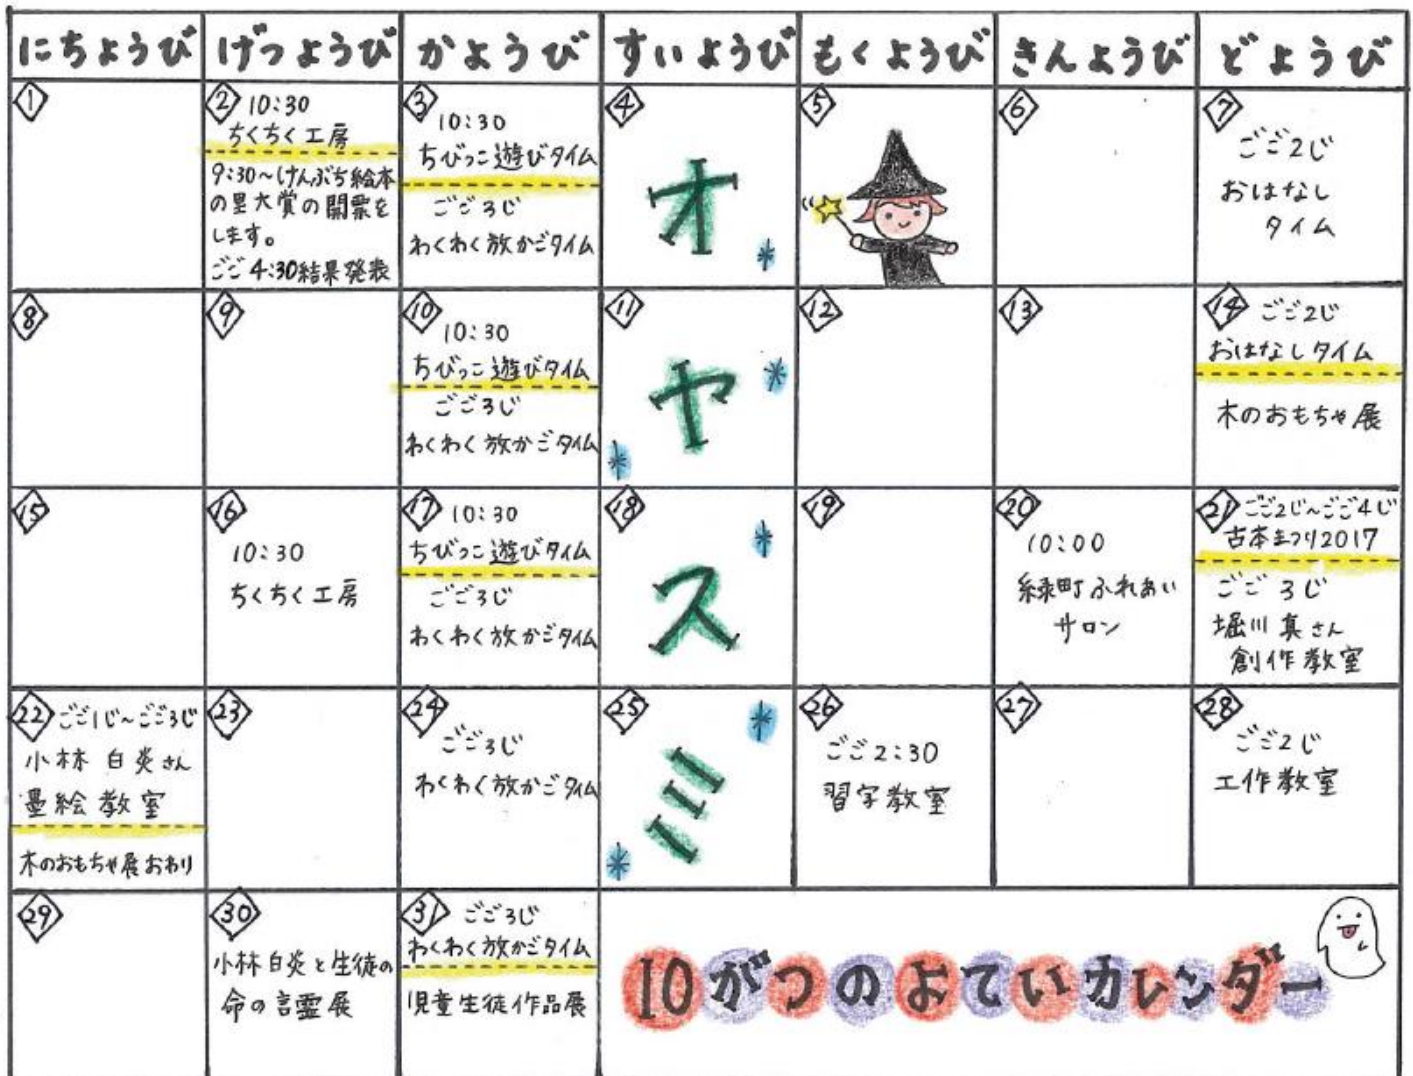 にちようび げつようび かようび すいようび もくようび きんようび どようび
1
2 10:30
ちくちく工房
9:30～けんぶち絵本
の里大賞の開票を
します。
ごご4:30結果発表
3
10:30
ちびっこ遊びタイム
ごご3じ
わくわく放かごタイム
4
オ
5
6
7
ごご2じ
おはなし
タイム
8
9
10
10:30
ちびっこ遊びタイム
ごご3じ
わくわく放かごタイム
11
ヤ
12
13
14 ごご2じ
おはなしタイム
木のおもちゃ展
15
16
10:30
ちくちく工房
17 10:30
ちびっこ遊びタイム
ごご3じ
わくわく放かごタイム
18
ス
19
20
10:00
緑町ふれあい
サロン
21 ごご2じ～ごご4じ
古本まつり2017
ごご 3じ
堀川 真さん
創作教室
22 ごご1じ～ごご3じ
小林 白炎さん
墨絵 教室
木のおもちゃ展おわり
23
24
ごご3じ
わくわく放かごタイム
25
ミ
26
ごご2:30
習字教室
27
28
ごご2じ
工作教室
29
30
小林白炎と生徒の
命の言霊展
31 ごご3じ
わくわく放かごタイム
児童生徒作品展
10がつのよていカレンダー